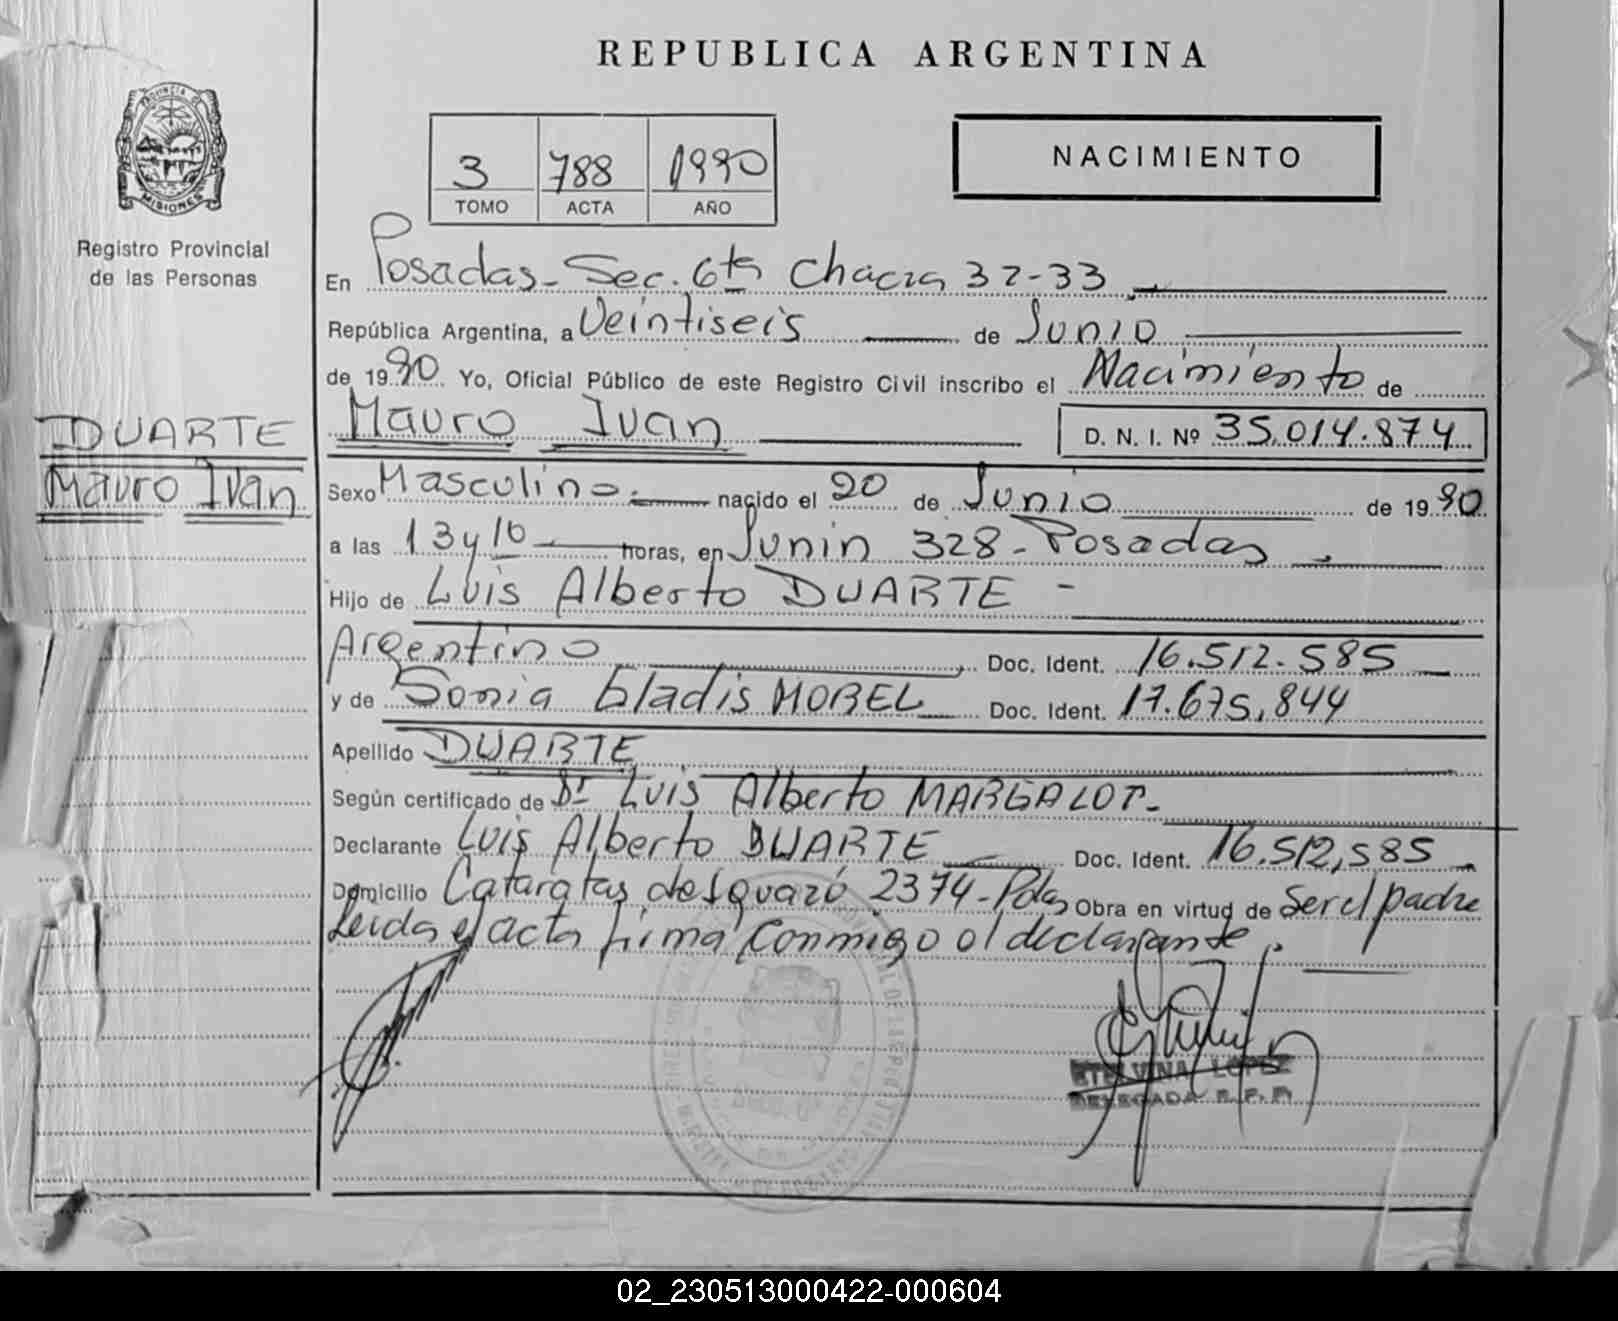 REPUBLICA ARGENTINA
PROVINCIA DE
MISIONES
Registro Provincial
de las Personas
3 788 1990
TOMO ACTA AÑO
NACIMIENTO
En Posadas - Sec. 6ta Chacra 32-33
República Argentina, a Veintiseis de Junio
de 1990 Yo, Oficial Público de este Registro Civil inscribo el Nacimiento de
DUARTE
Mauro Ivan
Mauro Ivan D. N. I. Nº 35.014.874
Sexo Masculino.- nacido el 20 de Junio de 1990
a las 13 y 10 horas, en Junin 328 - Posadas
Hijo de Luis Alberto DUARTE -
Argentino Doc. Ident. 16.512.585
y de Sonia Gladis MOREL Doc. Ident. 17.675,844
Apellido DUARTE
Según certificado de Dr Luis Alberto MARGALOT.
Declarante Luis Alberto DUARTE Doc. Ident. 16.512,585
Domicilio Cataratas de Iguazú 2374 - Pdas Obra en virtud de Ser el padre
Leida el acta firma conmigo el declarante.
ETELVINA LOPEZ
DELEGADA R.P.P.
02_230513000422-000604